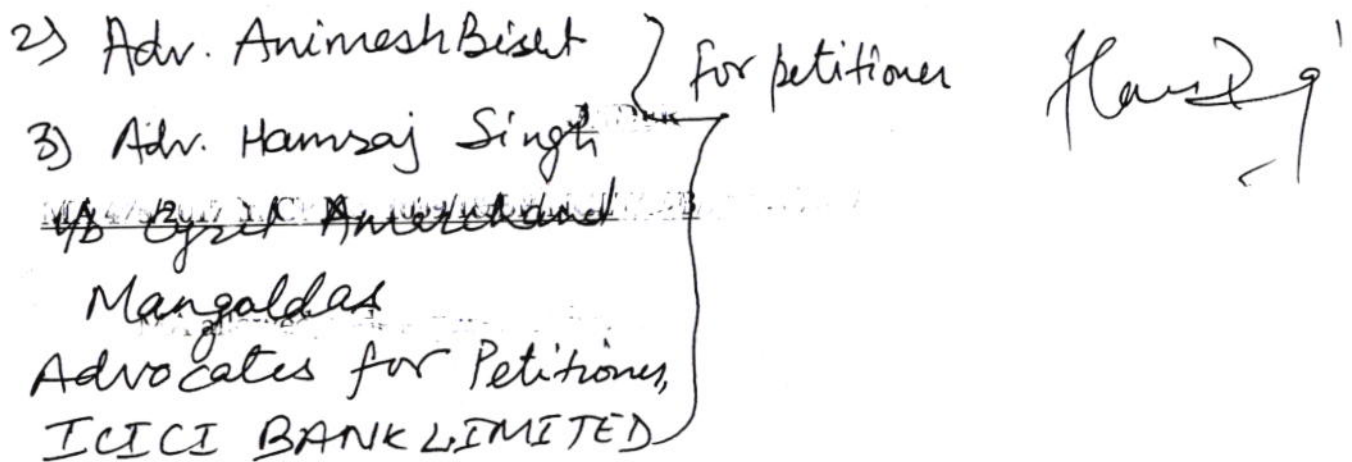 2) Adv. Animesh Bisht
for petitioner
3) Adv. Hamsaj Singh
i/b Cyril Amarchand
Mangaldas
Advocates for Petitioner,
ICICI BANK LIMITED